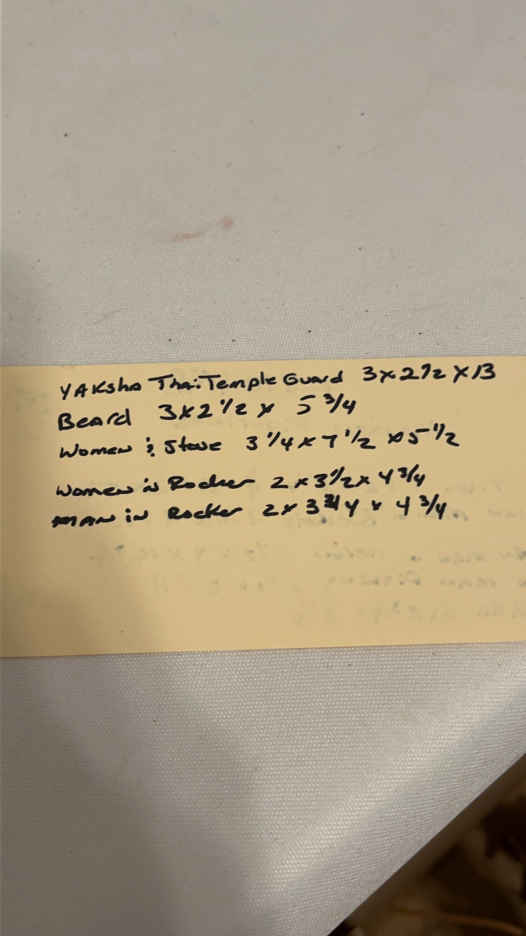 YAKsha Thai Temple Guard 3x2 1/2 x 13
Beard 3x2 1/2 x 5 3/4
Women & Stove 3 1/4 x 7 1/2 x 5 1/2
Women in Rocker 2 x 3 1/2 x 4 3/4
MAN in Rocker 2 x 3 3/4 x 4 3/4